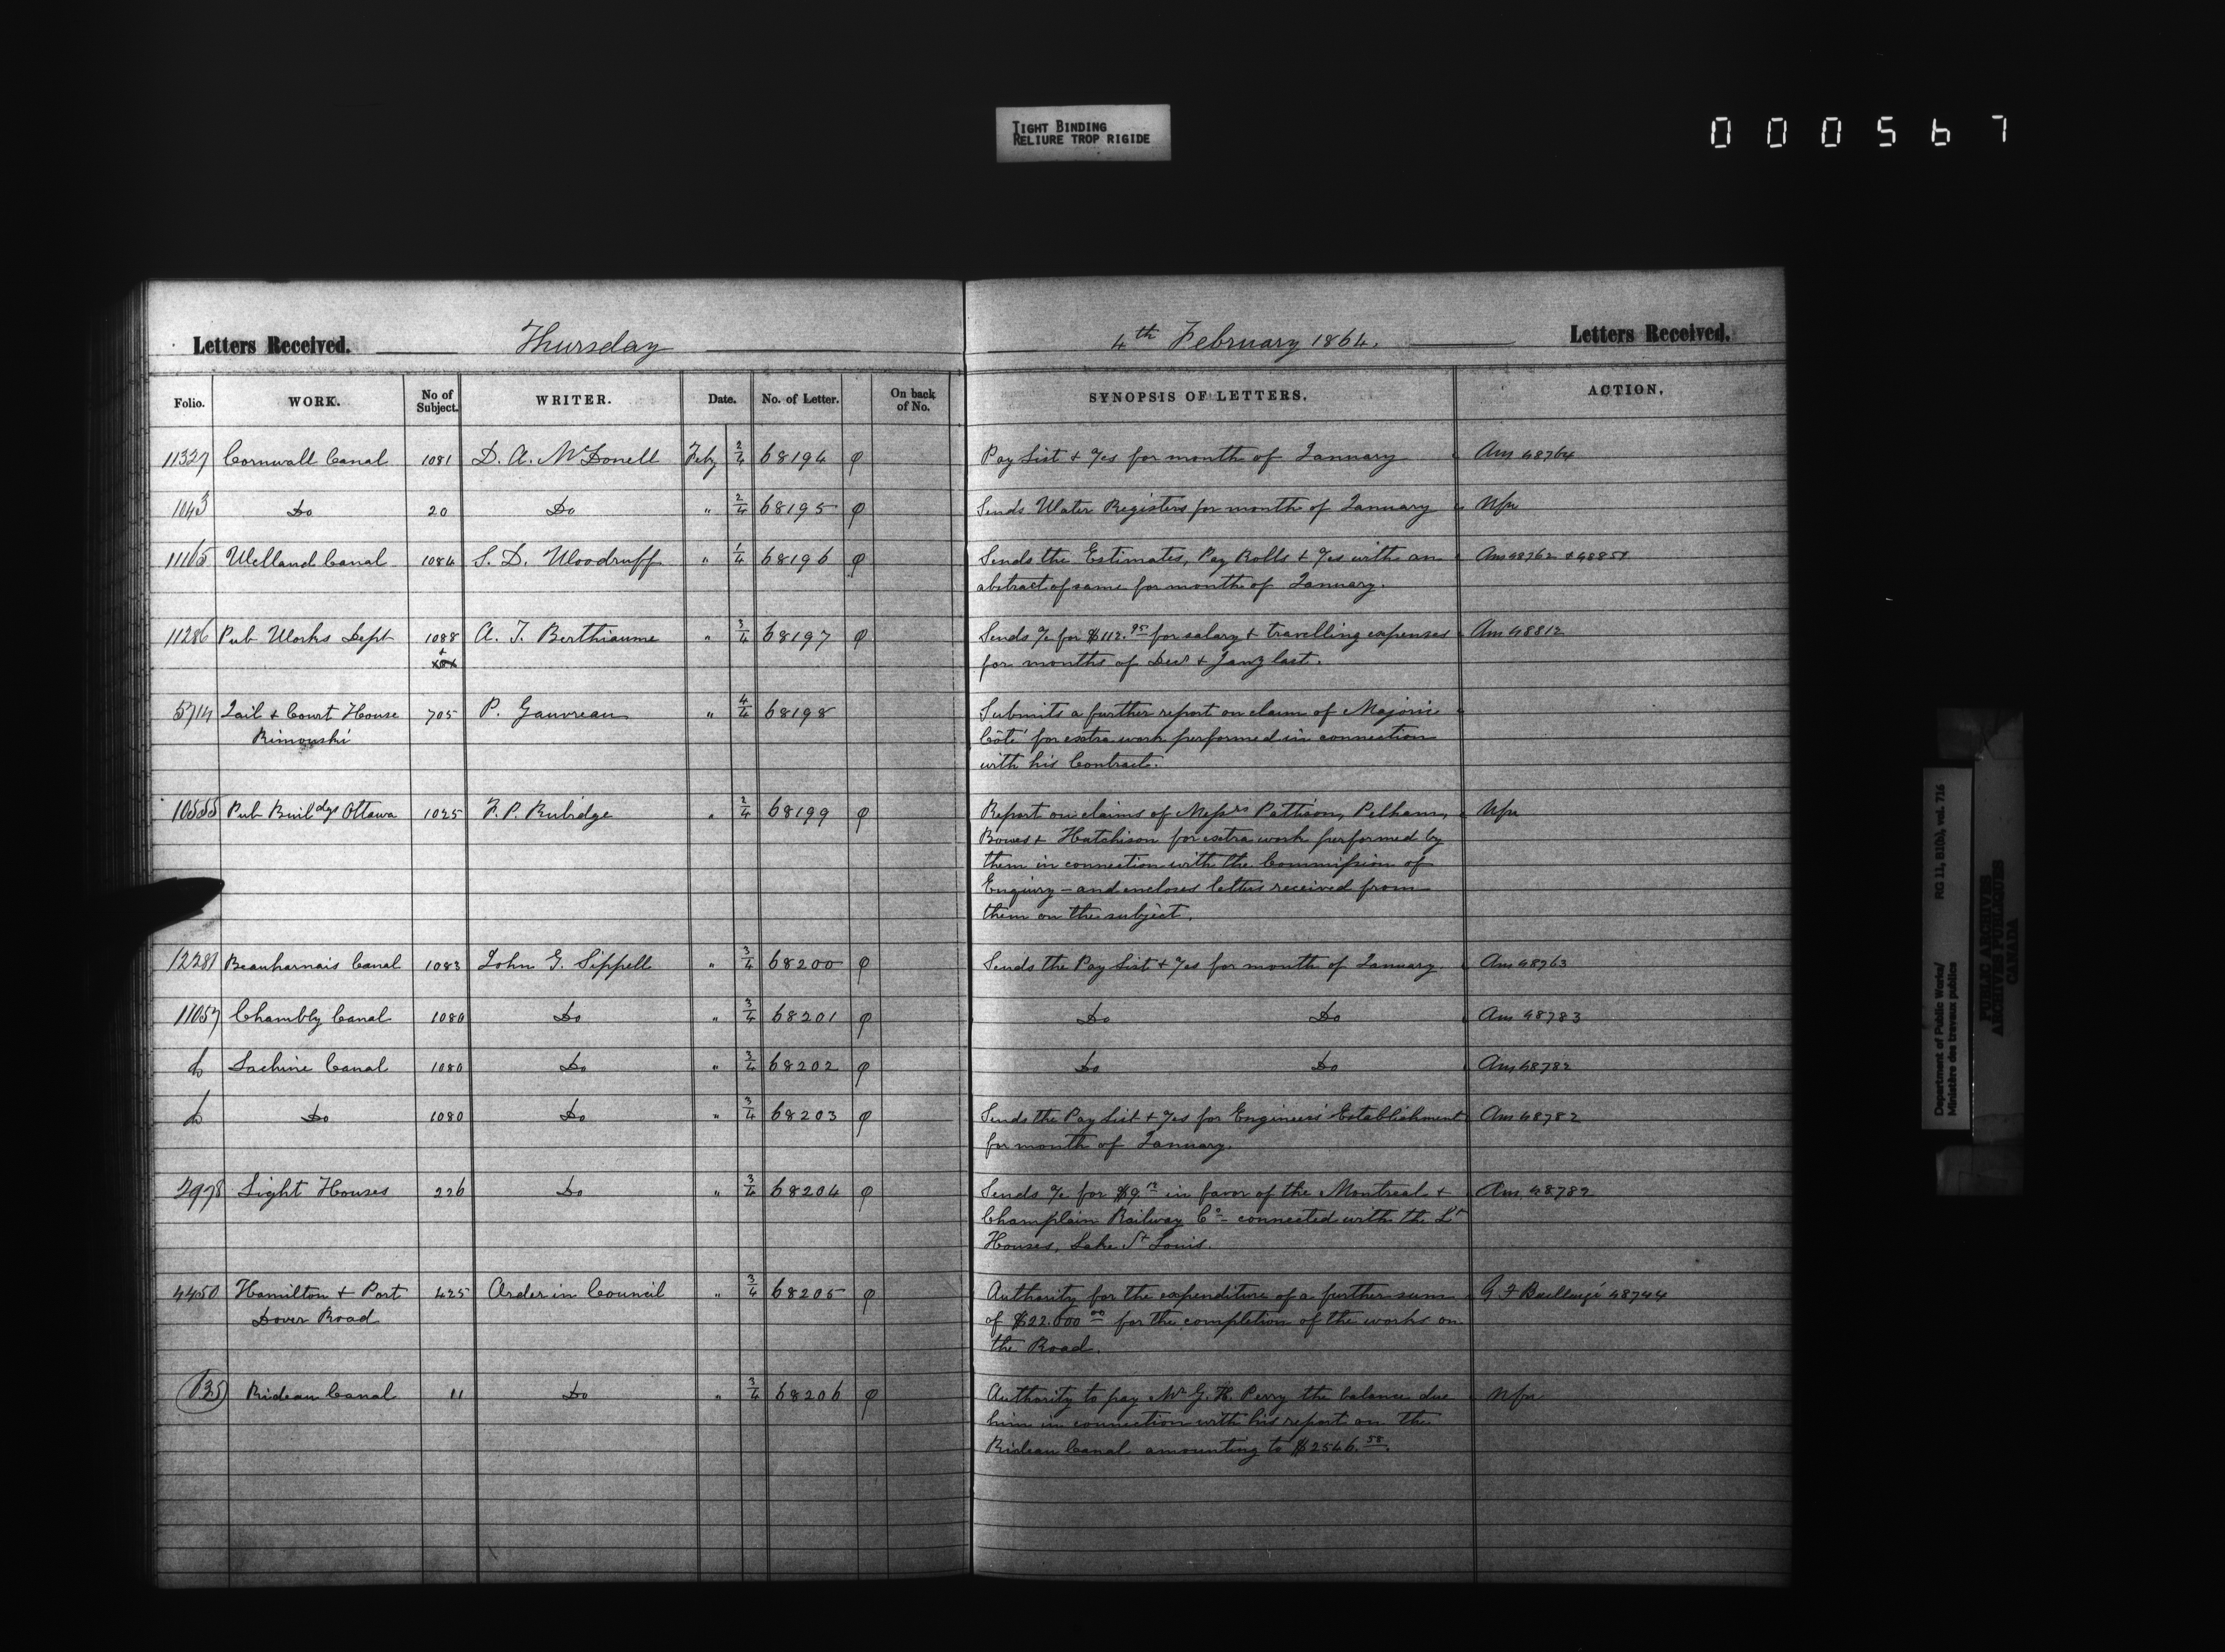 TIGHT BINDING
RELIURE TROP RIGIDE
000567
Letters Received. Thursday 4th February 1864. Letters Received.
Folio. WORK. No of Subject. WRITER. Date. No. of Letter. On back of No. SYNOPSIS OF LETTERS. ACTION.
11327 Cornwall Canal 1081 D. A. McDonell Feby 2/4 68194 φ Pay List + %s for month of January Ans 48764
1043 Do 20 Do " 2/4 68195 φ Sends Water Registers for month of January Nfn
11165 Welland Canal 1084 S. D. Woodruff " 1/4 68196 φ Sends the Estimates, Pay Rolls + %s with an Ans 48762 + 48851
abstract of same for month of January.
11286 Pub Works Dept 1088 A. T. Berthiaume " 3/4 68197 φ Sends % for $112.95 for salary + travelling expenses Ans 48812
+ for months of Decr + Jany last.
5714 Jail + Court House 705 P. Gauvreau " 4/4 68198 Submits a further report on claim of Majoric
Rimouski Côté for extra work performed in connection
with his Contract.
10555 Pub Buildgs Ottawa 1025 F. P. Rubidge " 2/4 68199 φ Report on claims of Messrs Pattison, Pelham, Nfn
Bowes + Hutchison for extra work performed by
them in connection with the Commission of
Enquiry - and encloses letters received from
them on the subject.
12281 Beauharnois Canal 1083 John G. Sippell " 3/4 68200 φ Sends the Pay List + %s for month of January Ans 48763
11057 Chambly Canal 1080 Do " 3/4 68201 φ Do Do Ans 48783
Do Lachine Canal 1080 Do " 3/4 68202 φ Do Do Ans 48782
Do Do 1080 Do " 3/4 68203 φ Sends the Pay List + %s for Engineers' Establishment Ans 48782
for month of January.
2978 Light Houses 226 Do " 3/4 68204 φ Sends % for $9. in favor of the Montreal + Ans 48782
Champlain Railway Co - connected with the Lt
Houses, Lake St Louis.
4450 Hamilton + Port 425 Order in Council " 3/4 68205 φ Authority for the expenditure of a further sum G F Baillairgé 48744
Dover Road of $22.000 00 for the completion of the works on
the Road.
635 Rideau Canal 11 Do " 3/4 68206 φ Authority to pay Mr G. H. Perry the balance due Nfn
him in connection with his report on the
Rideau Canal amounting to $2546.58.
Department of Public Works/
Ministère des travaux publics
RG 11, B1(b), vol. 716
PUBLIC ARCHIVES
ARCHIVES PUBLIQUES
CANADA